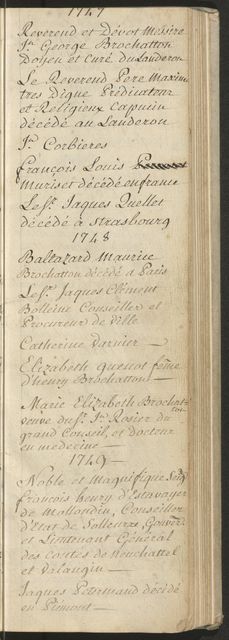 1747
Reverend et Dévot Messire
Jn. George Brochatton
Doyen et Curé du Landeron
Le Reverend Pere Maxim
tres digne Prédicateur
et Religieux Capucin
décédé au Landeron
Jn. Corbieres
François Louis
Muriset décédé en france
Le Sr. Jaques Quellet
décédé a Strasbourg
1748
Baltazard Maurice
Brochatton décédé a Paris
Le Sr. Jaques Clément
Bolleine Conseiller et
Procureur de Ville
Catherine Varnier —
Elizabeth quenot feme
d'henry Brochatton —
Marie Elizabeth Brochat-
ton
veuve du Sr. Jn. Rosier du
grand Conseil, et docteur
en medecine —
1749 —
Noble et Magnifique Seigr
François henry d'Estavayer
de Mollondin, Conseiller
d'Etat de Solleure, Gouvern
et Lieutenant Général
des Contés de Neuchattel
et Valangin —
Jaques Petermand décédé
en Piémont —